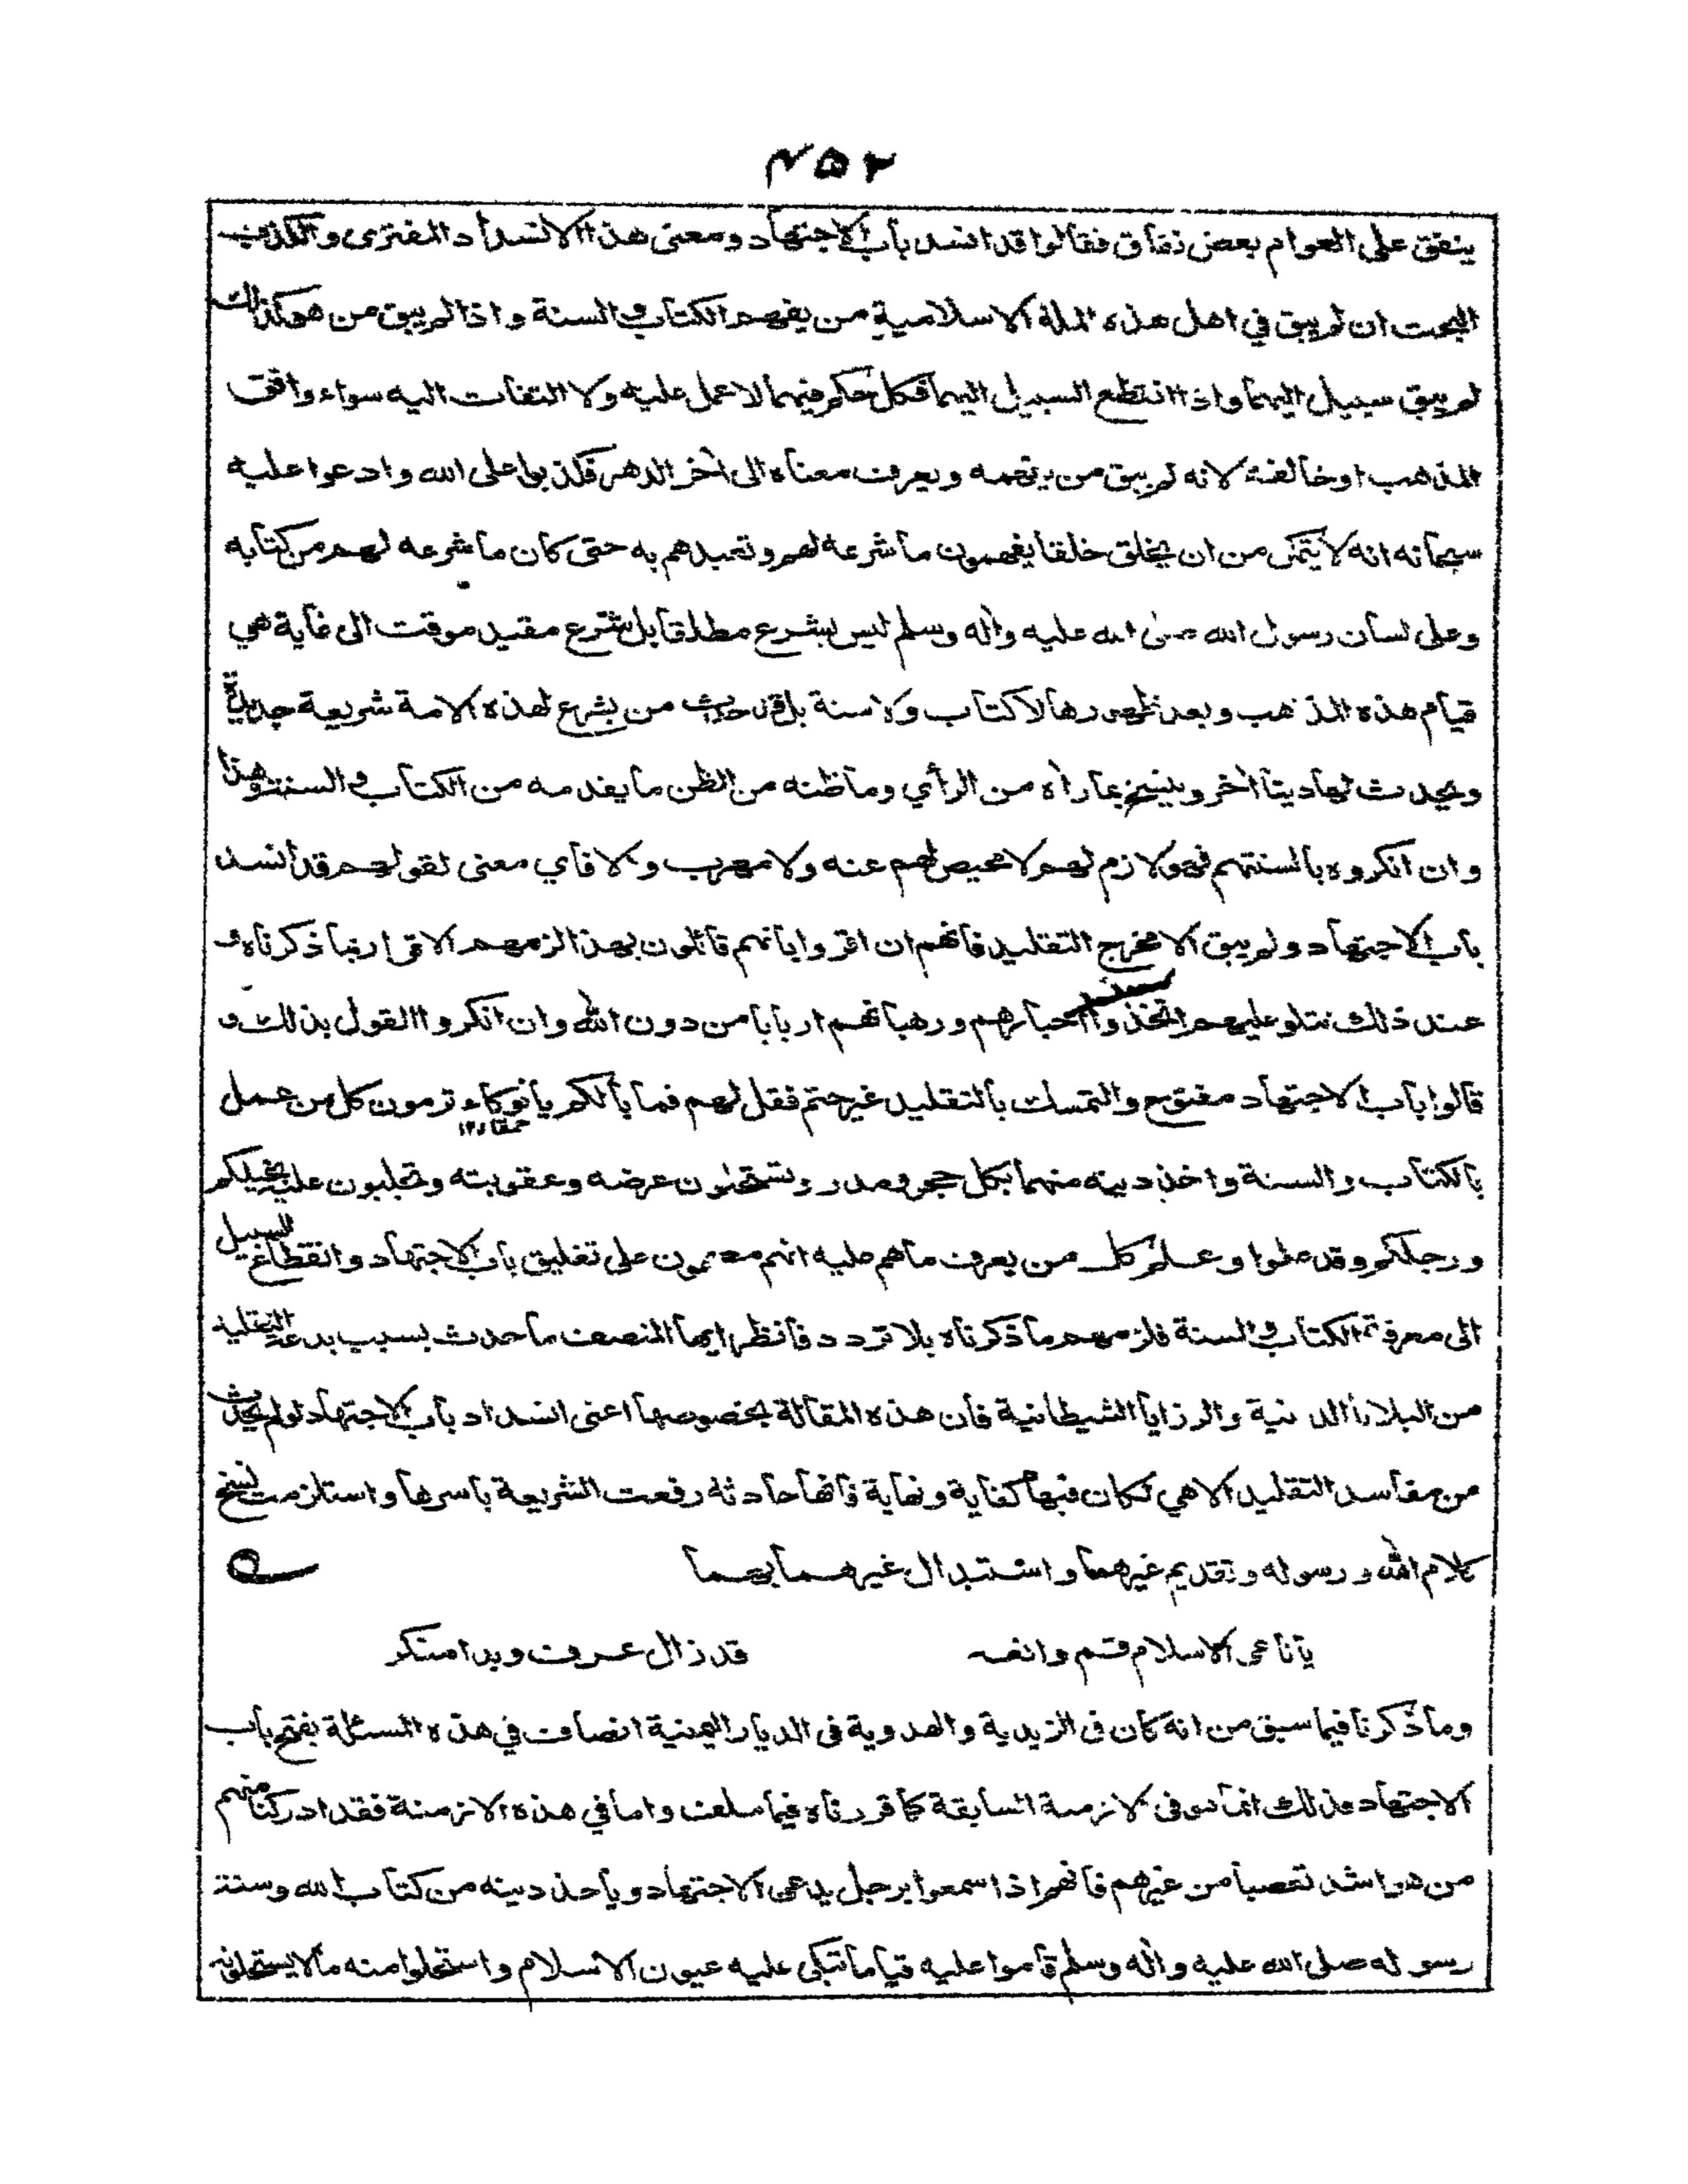 ٤٥٢
ينفق على العوام بعض نفاق فقالوا قد انسد باب الاجتهاد ومعنى هذا الانسداد المفترى والكذب
البحت ان لم يبق في اهل هذه الملة الاسلامية من يفهم الكتاب والسنة واذا لم يبق من هو كذلك
لم يبق سبيل اليهما واذا انقطع السبيل اليهما فكل حكم فيهما لا عمل عليه ولا التفات اليه سواء وافق
المذهب او خالفه لانه لم يبق من يفهمه ويعرف معناه الى آخر الدهر فكذبوا على الله وادعوا عليه
سبحانه انه لا يتمكن من ان يخلق خلقا يفهمون ما شرعه لهم وتعبدهم به حتى كان ما شرعه لهم من كتابه
وعلى لسان رسول الله صلى الله عليه وآله وسلم ليس بشرع مطلقا بل شرع مقيد موقت الى غاية هي
قيام هذه المذهب وبعد ظهورها لا كتاب ولا سنة بل قد حدث من يشرع لهذه الامة شريعة جديدة
ويحدث لها دينا آخر وينسخ بما رآه من الرأي وما ظنه من الظن ما يقدمه من الكتاب والسنة وهذا
وان انكروه بالسنتهم فهو لازم لهم لا محيص لهم عنه ولا مهرب والا فأي معنى لقولهم قد انسد
باب الاجتهاد ولم يبق الا مخرج التقليد فانهم ان اقروا بانهم قائلون بهذا لزمهم الاقرار بما ذكرناه و
عند ذلك نتلو عليهم اتخذوا احبارهم ورهبانهم اربابا من دون الله وان انكروا القول بذلك و
قالوا باب الاجتهاد مفتوح والتمسك بالتقليد غير حتم فقل لهم فما بالكم يا نوكاء ترمون كل من عمل
حمقاء ١٢
بالكتاب والسنة واخذ دينه منهما بكل حجر ومدر وتستحلون عرضه وعقوبته وتجلبون عليه بخيلكم
ورجلكم وقد علموا وعلم كل من يعرف ما هم عليه انهم مصممون على تغليق باب الاجتهاد وانقطاع السبيل
الى معرفة الكتاب والسنة فلزمهم ما ذكرناه بلا تردد فانظر ايها المنصف ما حدث بسبب بدعة التقليد
من البلايا الدينية والرزايا الشيطانية فان هذه المقالة بخصوصها اعنى انسداد باب الاجتهاد لو لم يحدث
من مفاسد التقليد الا هي لكان فيها كفاية ونهاية فانها حادثة رفعت الشريعة باسرها واستلزمت نسخ
كلام الله ورسوله وتقديم غيرهما واستبدال غيرهما بهما
يا ناعى الاسلام قم وانعه قد زال عرف وبدا منكر
وما ذكرنا فيما سبق من انه كان فى الزيدية والهدوية فى الديار اليمنية انصاف في هذه المسئلة بفتح باب
الاجتهاد فذلك انما هو فى الازمنة السابقة كما قررناه فيما سلف واما في هذه الازمنة فقد ادركنا منهم
من هو اشد تعصبا من غيرهم فانهم اذا سمعوا برجل يدعى الاجتهاد وياخذ دينه من كتاب الله وسنة
رسوله صلى الله عليه وآله وسلم قاموا عليه قياما تبكى عليه عيون الاسلام واستحلوا منه ما لا يستحلونه